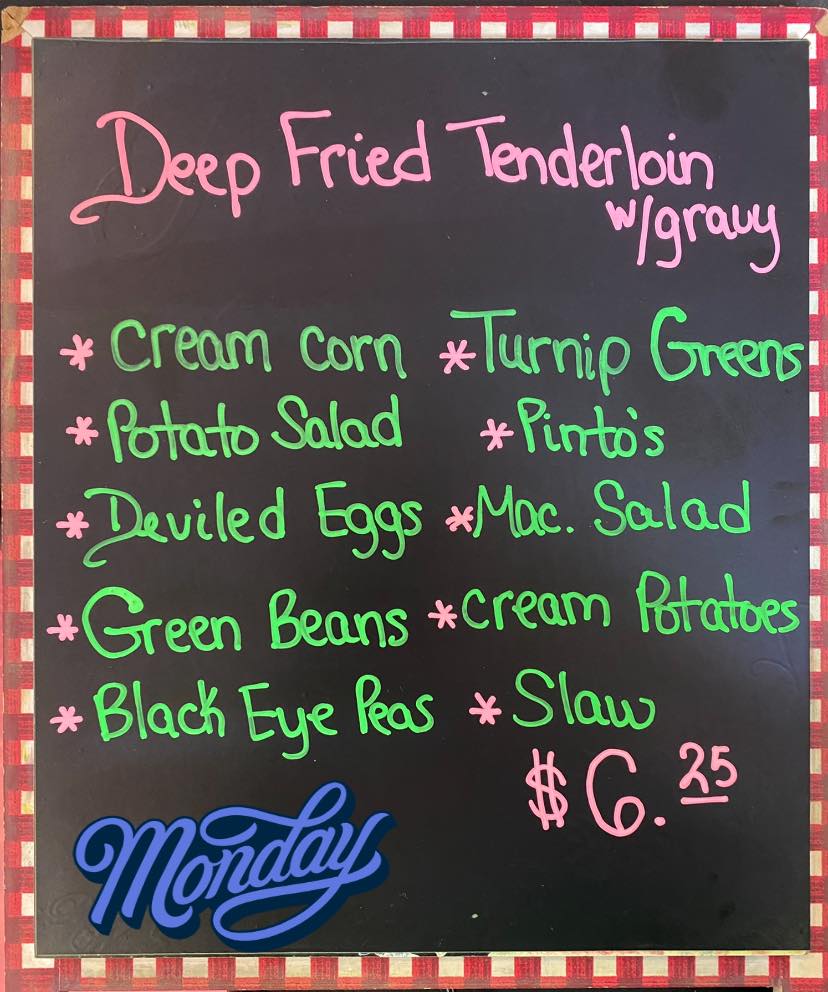 Deep Fried Tenderloin
w/gravy
* Cream Corn
* Potato Salad
* Deviled Eggs
* Green Beans
* Black Eye Peas
* Turnip Greens
* Pinto's
* Mac. Salad
* Cream Potatoes
* Slaw
$6.25
Monday